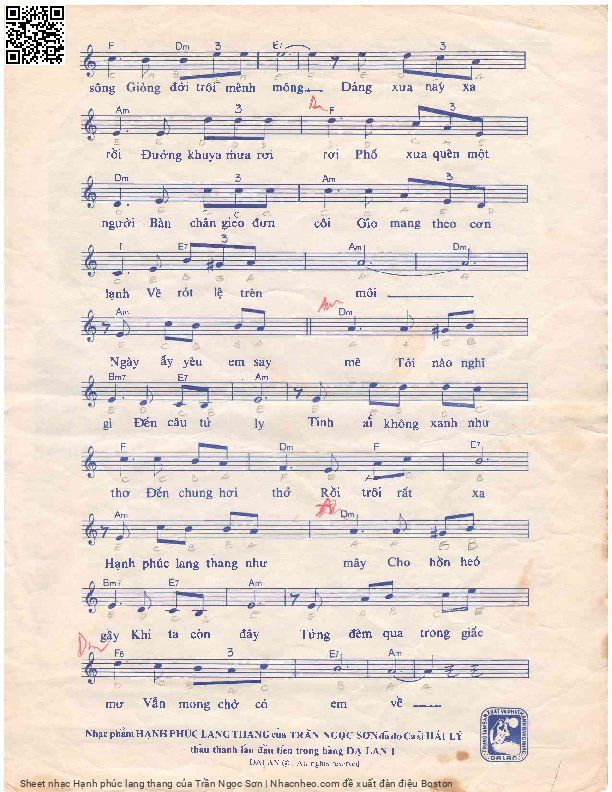 F Dm 3 E7 3
sông Giòng đời trôi mênh mông Dáng xưa nay xa
Am 3 Dm F 3
rồi Đường khuya mưa rơi rơi Phố xưa quên một
Dm 3 Am 3
người Bàn chân gieo đơn côi Gío mang theo cơn
E7 3 Am Dm
lạnh Về rót lệ trên môi
Am Am Dm
Ngày ấy yêu em say mê Tôi nào nghĩ
Bm7 E7 Am
gì Đến câu từ ly Tình ai không xanh như
F Dm F E7
thơ Đến chung hơi thở Rồi trôi rất xa
Am Dm
Hạnh phúc lang thang như mây Cho hồn heó
Bm7 E7 Am
gầy Khi ta còn đây Từng đêm qua trong giấc
Dm 3 E7 Am
mơ Vẫn mong chờ có em về
Nhạc phẩm HẠNH PHÚC LANG THANG của TRẦN NGỌC SƠN do Ca sĩ HẢI LÝ
thâu thanh lần đầu tiên trong băng DẠ LAN 1
DẠ LAN All rights reserved
DẠ LAN
Sheet nhạc Hạnh phúc lang thang của Trần Ngọc Sơn | Nhacnheo.com đề xuất đàn điệu Boston